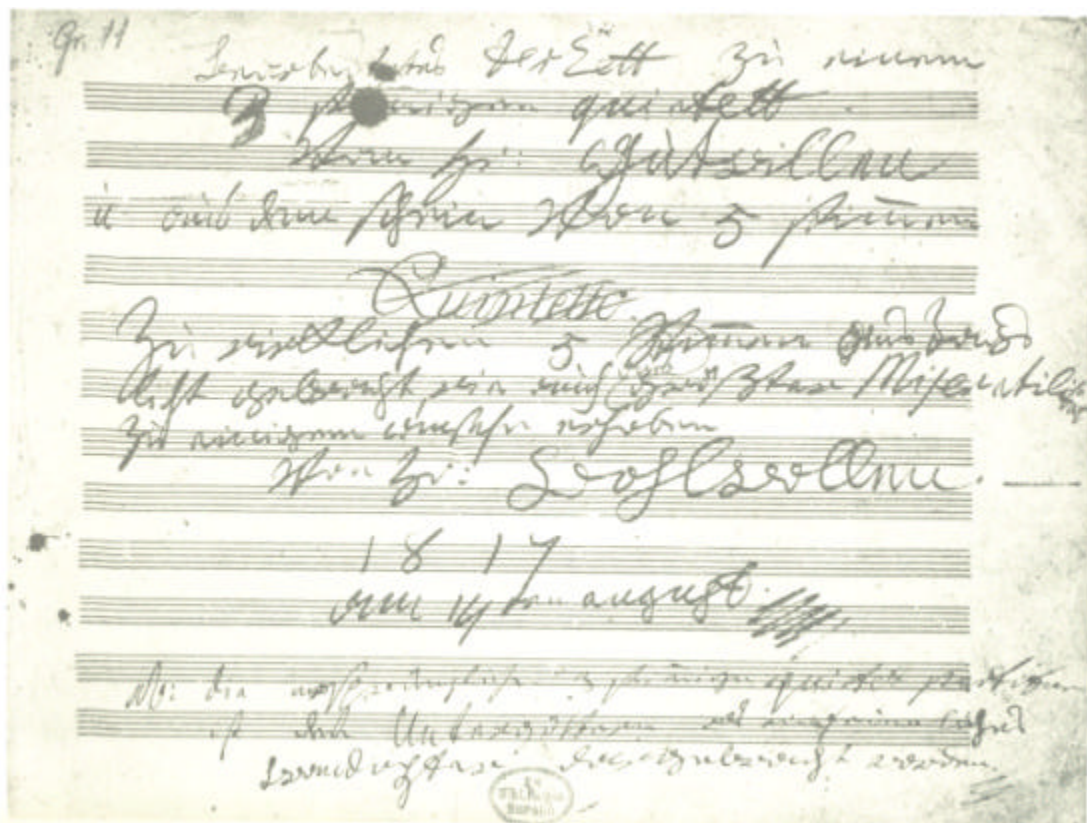 Gr. 11
Bearbeitetes Terzett zu einem
3 stimmigen quintett
Vom Hr: Gutwillen
u aus dem schein Von 5 stimen
Quintette
zu wirklichen 5 Stimen ans Tags
licht gebracht, wie auch größter Miserabilität
zu einigem ansehn erhoben
Von Hr: Wohlwollen.
1817
am 14ten august.
Nb: die 3 stimige quintett partitur
ist den Untergöttern als ein
dargebracht worden.